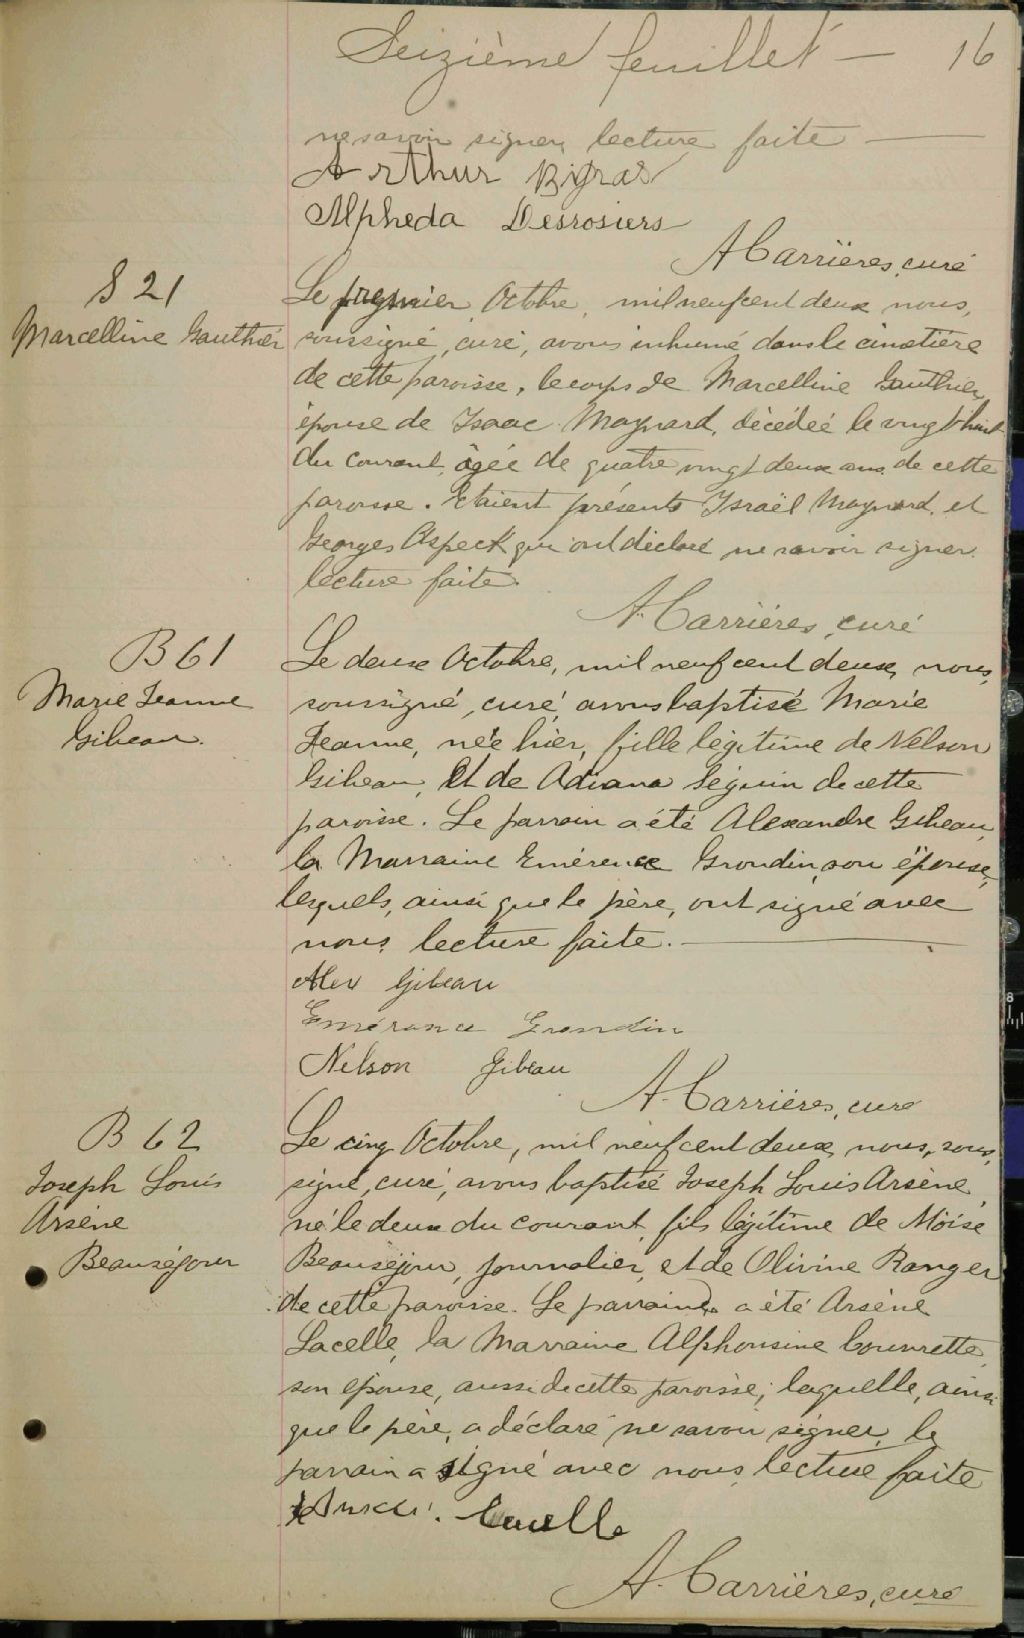 Seizième feuillet — 16
ne savoir signer, lecture faite —
Arthur Bigras
Alpheda Desrosiers
A Carrières, curé
S 21
Marcelline Gauthier
Le premier Octobre, mil neuf cent deux nous,
soussigné, curé, avons inhumé dans le cimetière
de cette paroisse, le corps de Marcelline Gauthier,
épouse de Isaac Maynard, décédée le vingt huit
du courant, âgée de quatre vingt deux ans de cette
paroisse. Etaient présents Israël Maynard, et
Georges Aspeck qui ont déclaré ne savoir signer.
lecture faite.
A. Carrières, curé
B 61
Marie Jeanne
Gibeau.
Le deux Octobre, mil neuf cent deux, nous,
soussigné, curé, avons baptisé Marie
Jeanne, née hier, fille légitime de Nelson
Gibeau, et de Adiana Séguin de cette
paroisse. Le parrain a été Alexandre Gibeau,
la Marraine Emérence Grondin, son épouse,
lesquels, ainsi que le père, ont signé avec
nous, lecture faite. —
Alex Gibeau
Emérance Grondin
Nelson Gibeau
A. Carrières, curé
B 62
Joseph Louis
Arsène
Beauséjour
Le cinq Octobre, mil neuf cent deux, nous, sous,
signé, curé, avons baptisé Joseph Louis Arsène,
né le deux du courant, fils légitime de Moïse
Beauséjour, journalier, et de Olivine Ranger
de cette paroisse. Le parrain a été Arsène
Lacelle, la Marraine Alphonsine Couvrette,
son épouse, aussi de cette paroisse, laquelle, ainsi
que le père, a déclaré ne savoir signer, le
parrain a signé avec nous, lecture faite
A. Carrières, curé